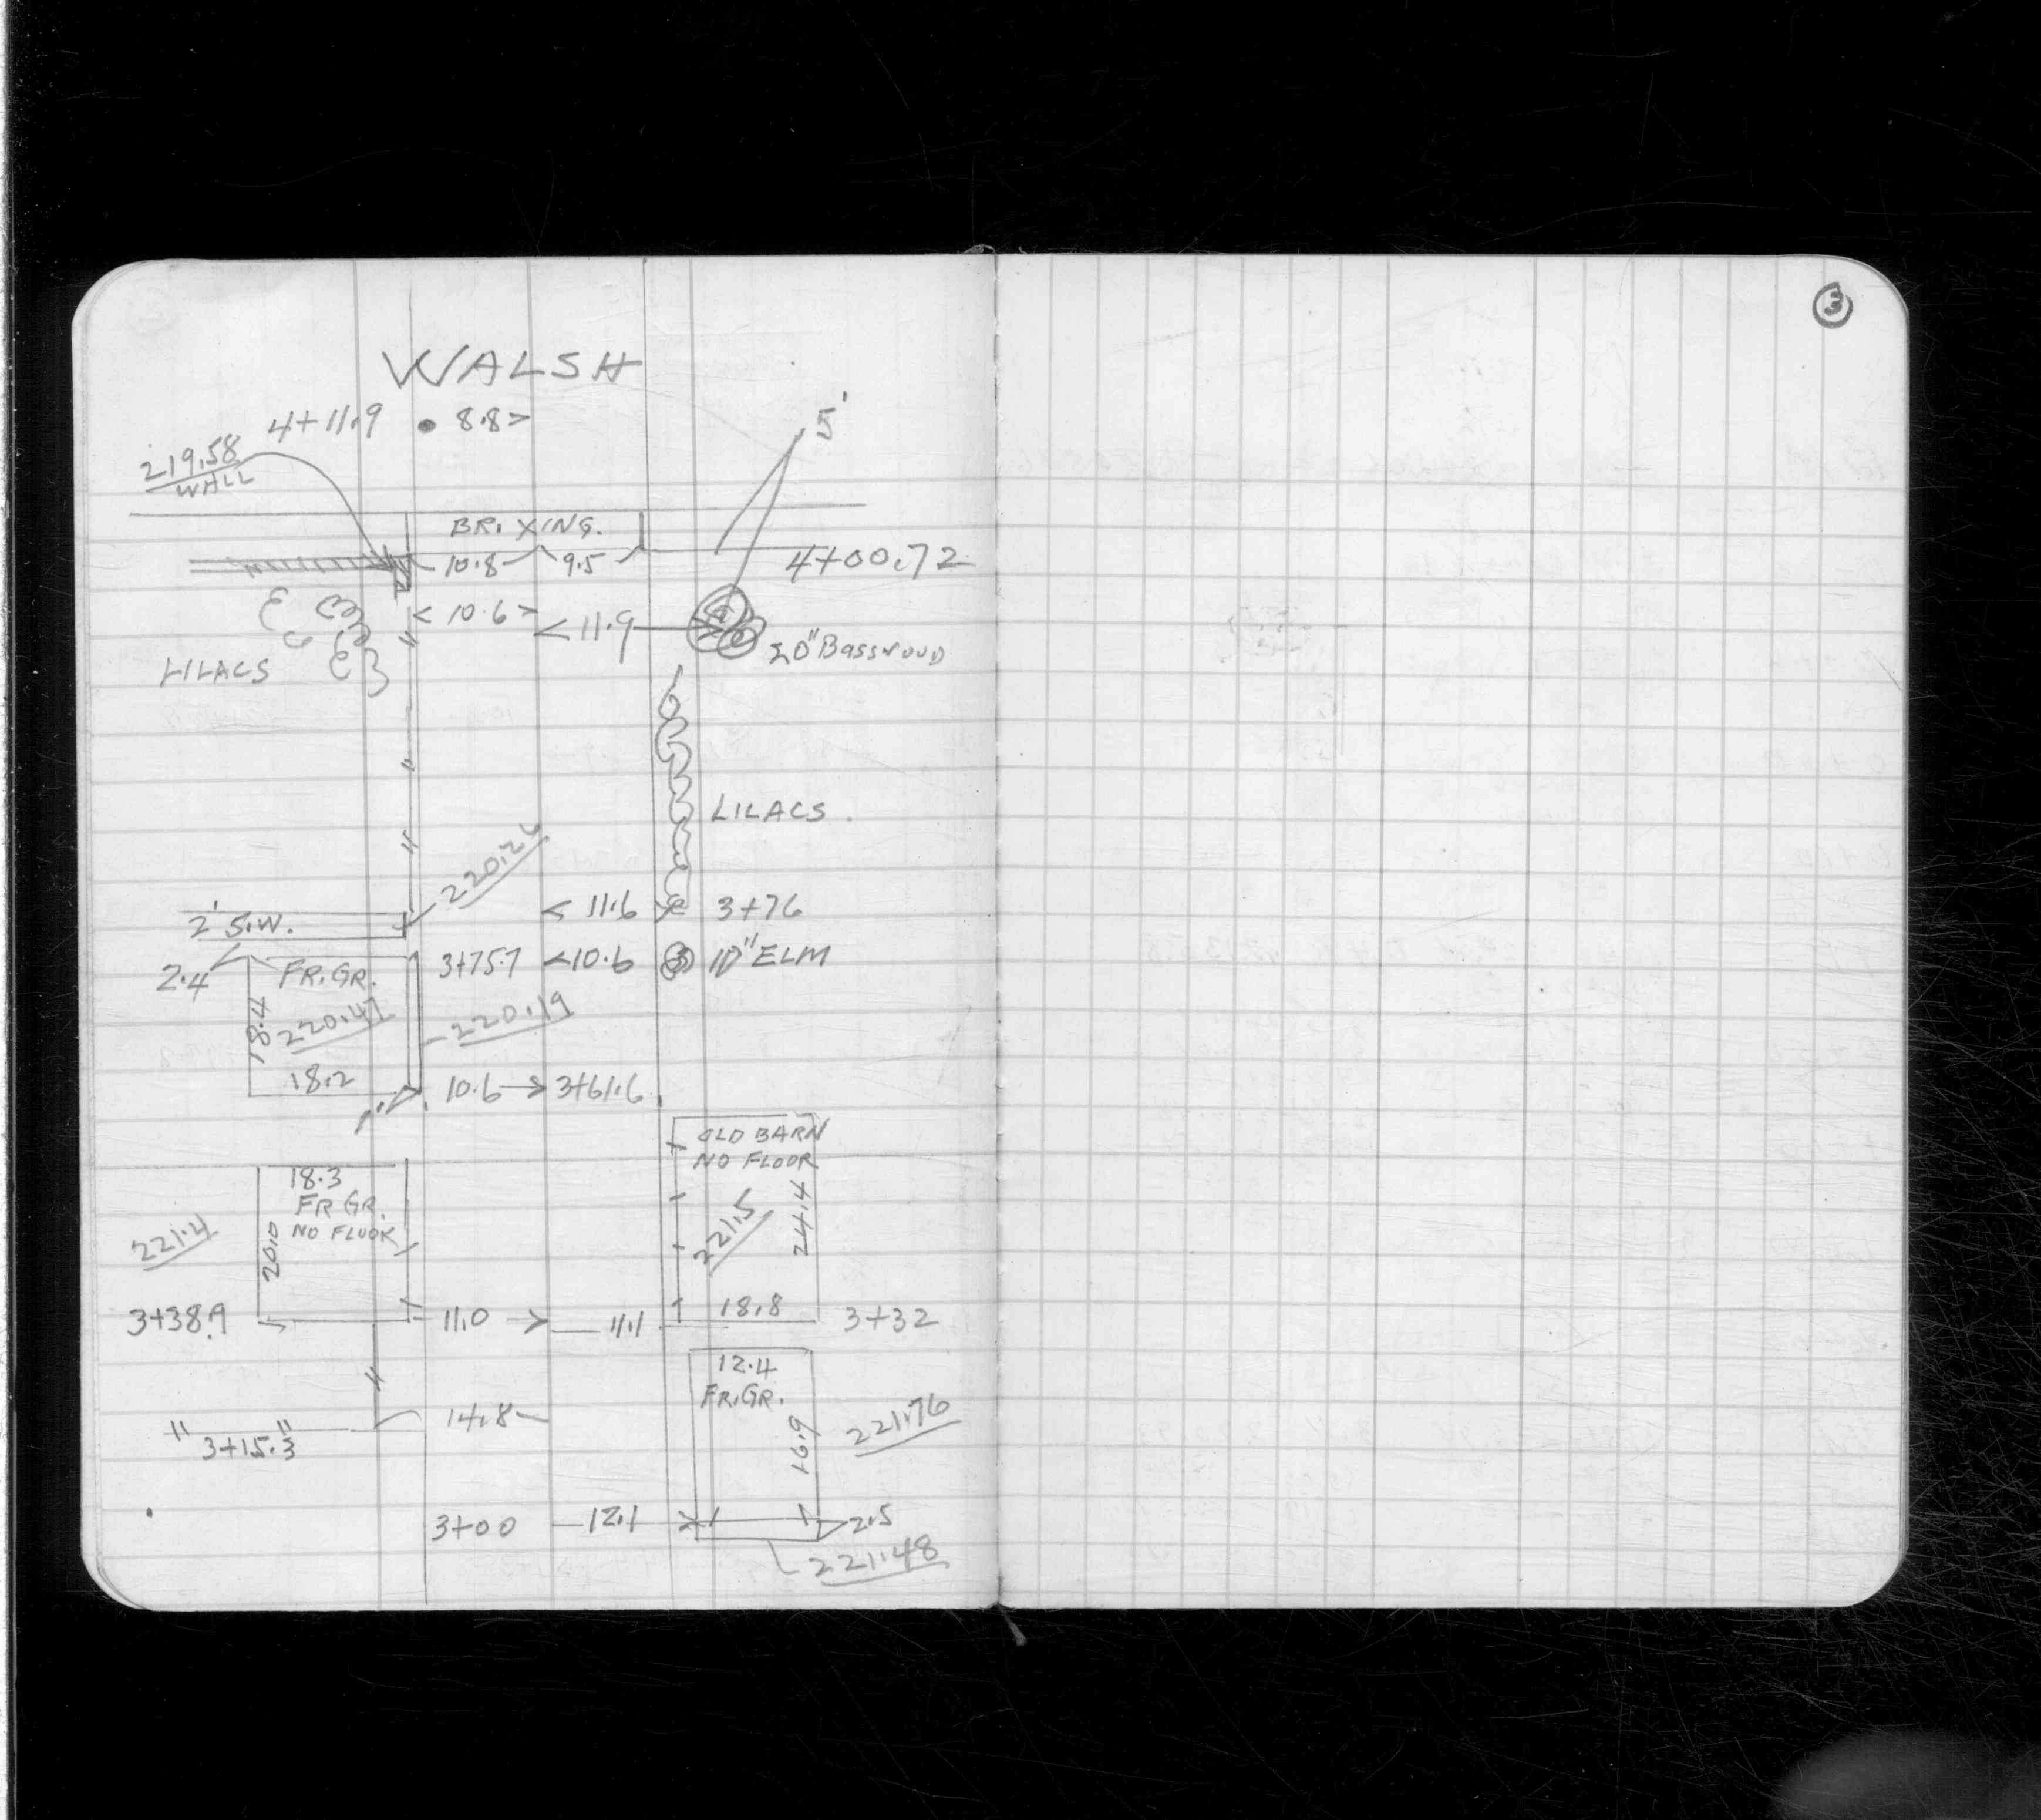 3
WALSH
4+11.9 8.8>
5'
219.58
WALL
BR. XING.
10.8 9.5
4+00.72
<10.6>
<11.9
LILACS
LILACS.
2' S.W.
<11.6 3+76
2.4
FR.GR.
3+75.7 <10.6 10" ELM
18.4
220.19
18.2
10.6 → 3+61.6
OLD BARN
NO FLOOR
18.3
FR GR.
NO FLOOR
221.4
20.0
221.5
24.4
3+38.9 11.0 > 11.1 18.8 3+32
12.4
FR.GR.
14.8
221.76
16.9
" 3+15.3 "
3+00 12.1 2.5
221.48